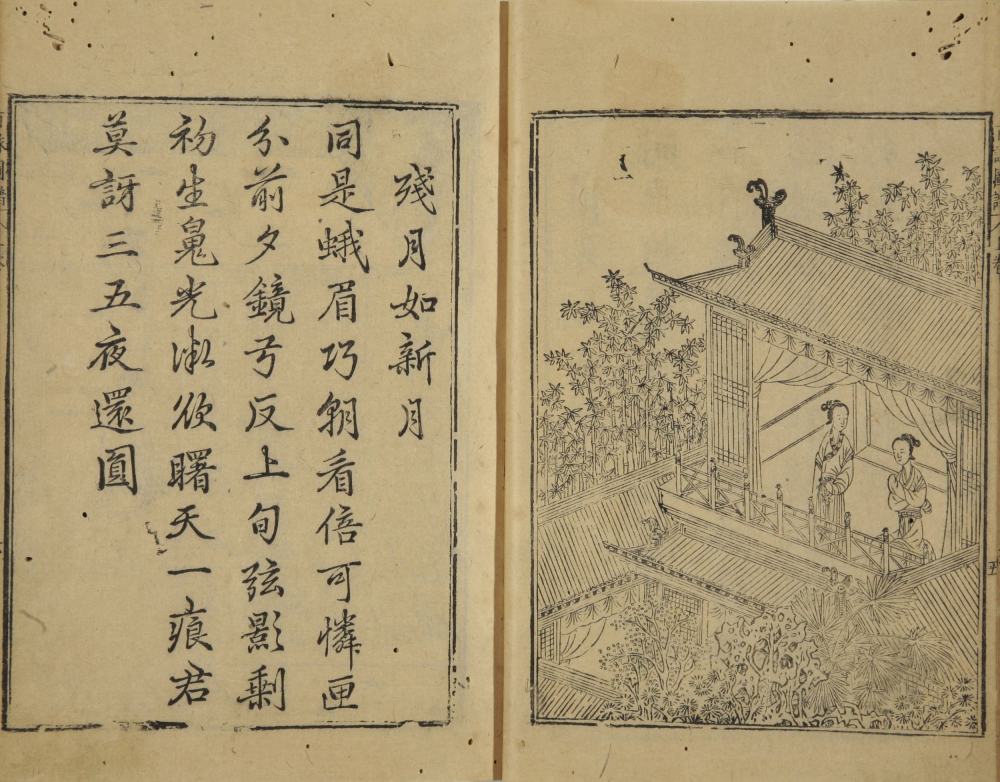 殘月如新月
同是蛾眉巧朝看倍可憐匣
分前夕鏡弓反上旬弦影剩
初生魄光漸欲曙天一痕君
莫訝三五夜還圓